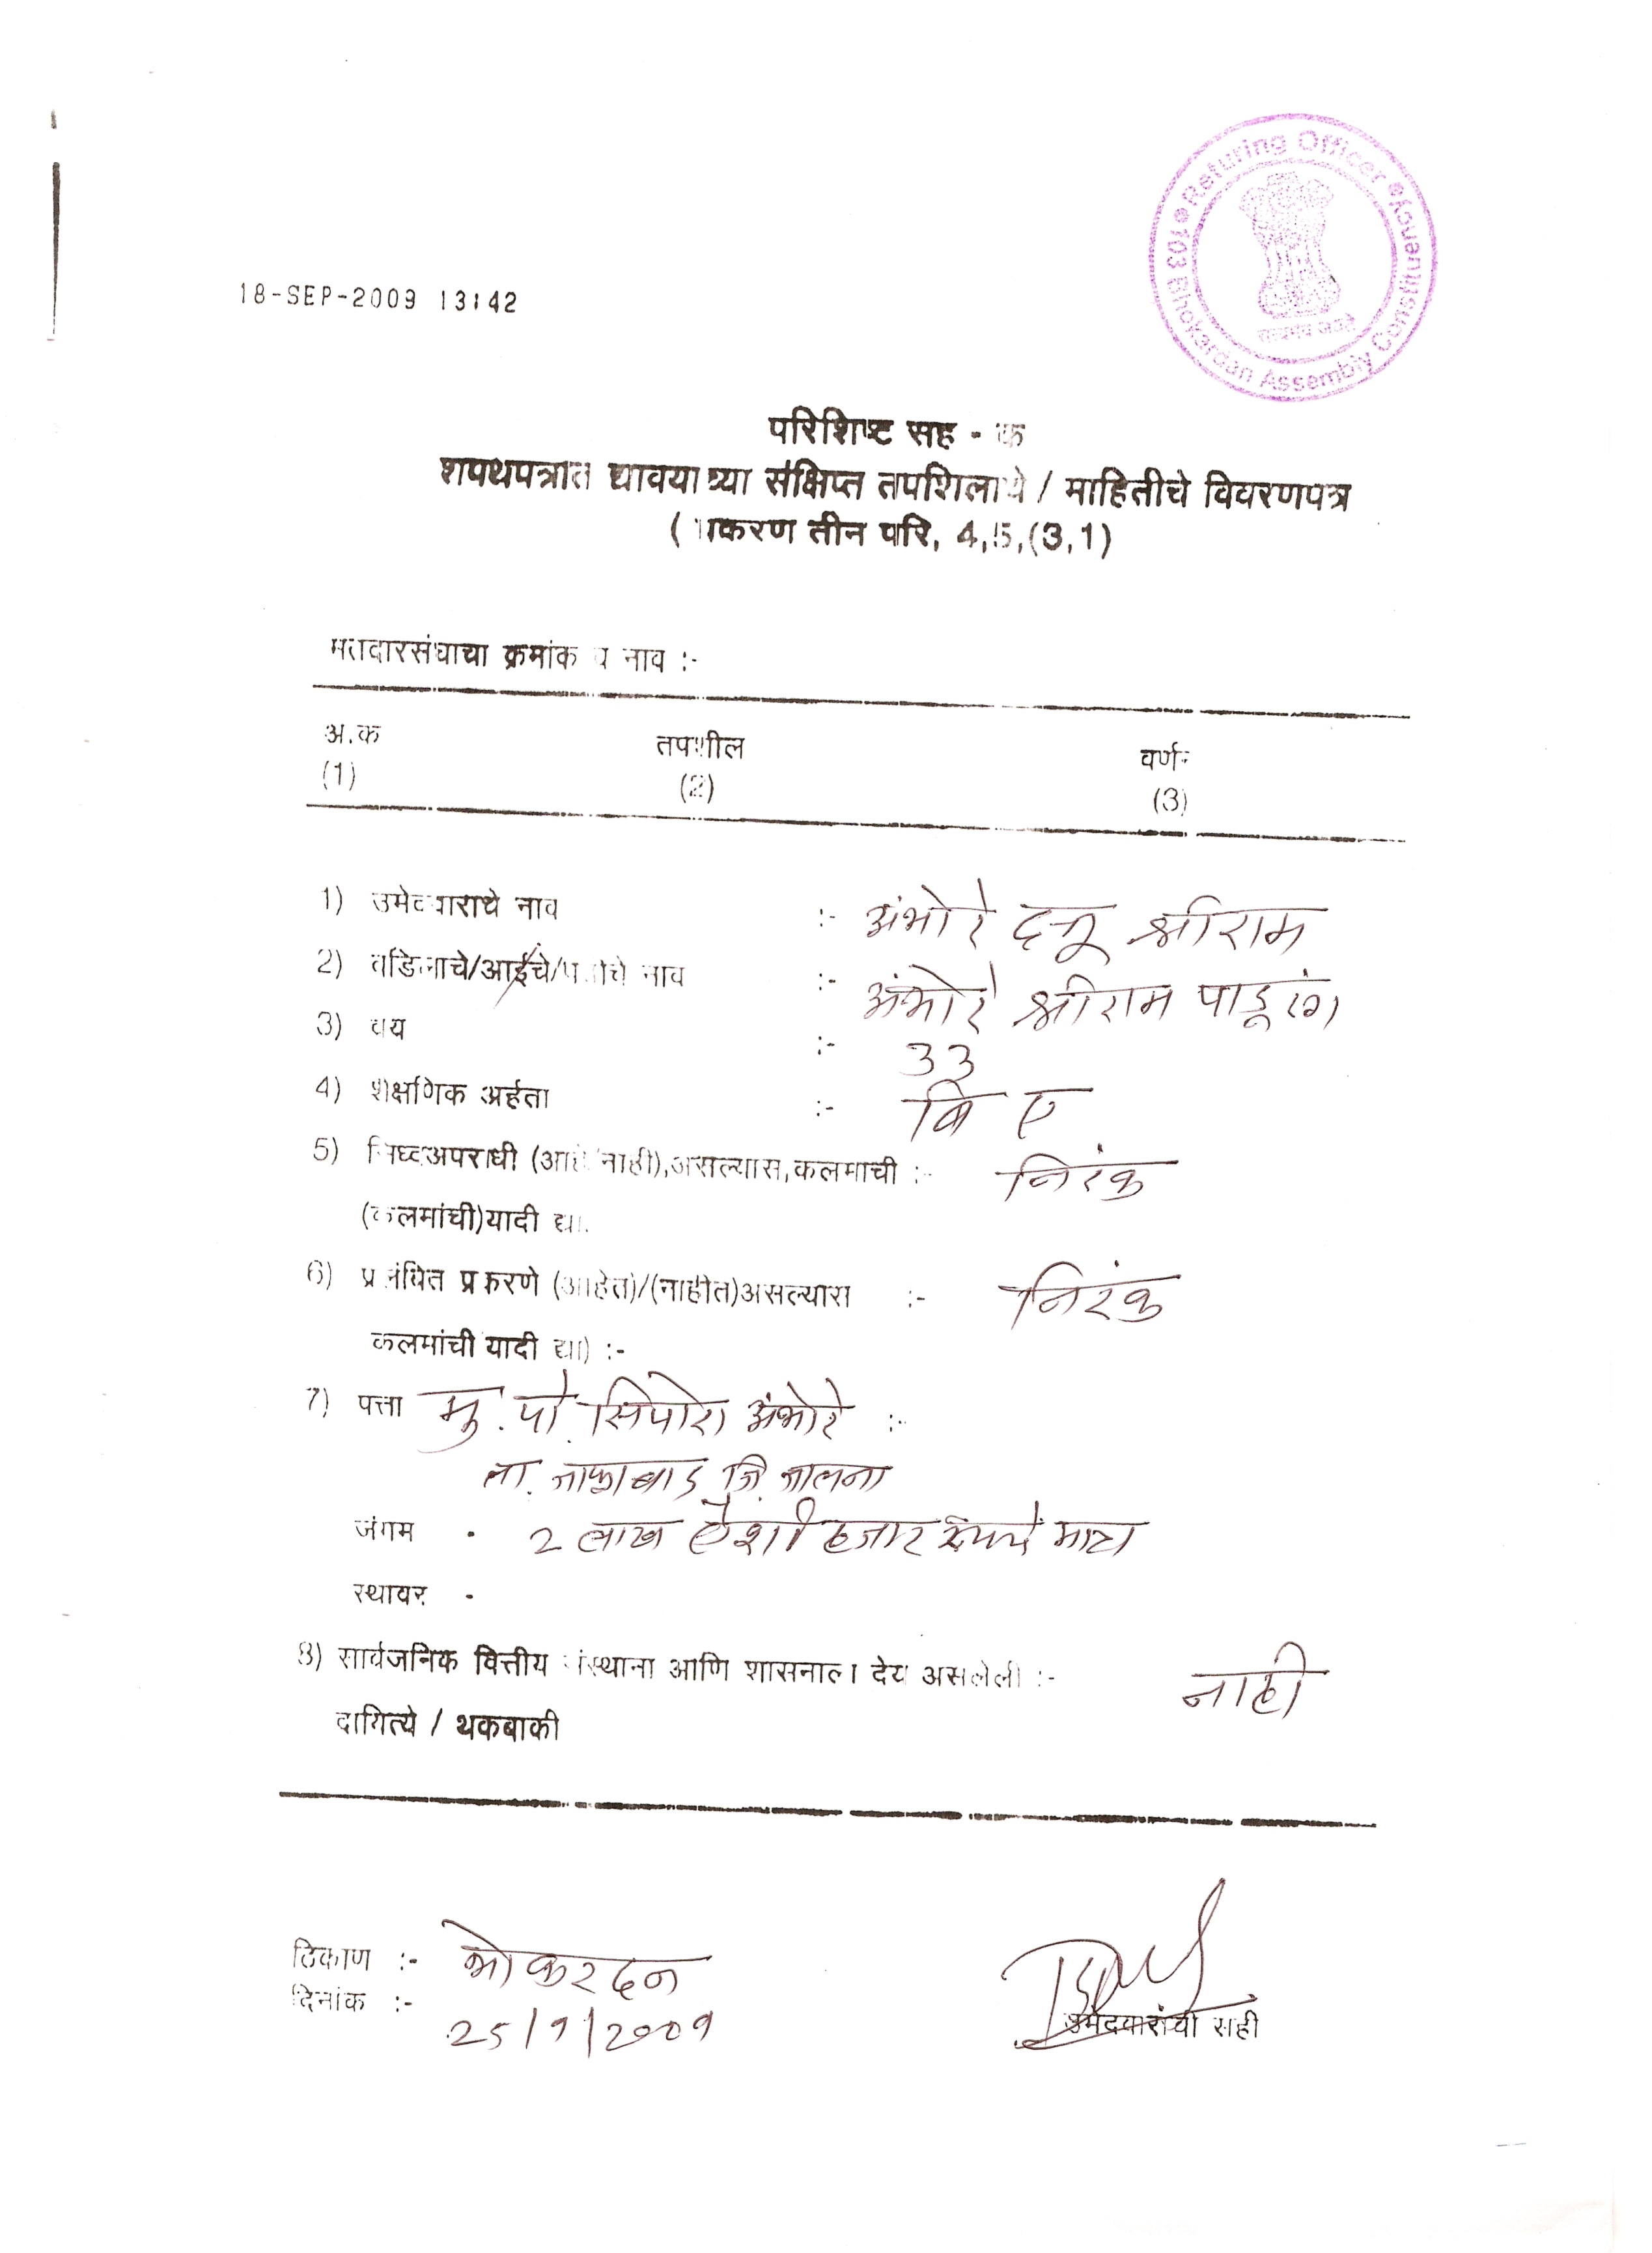 Returing Officer
103 Bhokardan Assembly Constituency
सत्यमेव जयते
18-SEP-2009 13:42
परिशिष्ट सह - क
शपथपत्रात द्यावयाच्या संक्षिप्त तपशिलाचे / माहितीचे विवरणपत्र
(प्रकरण तीन परि, 4,5,(3,1)
मतदारसंघाचा क्रमांक व नाव :-
अ.क तपशील वर्णन
(1) (2) (3)
1) उमेदवाराचे नाव :- अंभोरे दत्तू श्रीराम
2) वडिलाचे/आईचे/पतीचे नाव :- अंभोरे श्रीराम पाडूरंग
3) वय :- 33
4) शैक्षणिक अर्हता :- बि ए
5) सिध्दअपराधी (आहे/नाही),असल्यास,कलमाची :- निरंक
(कलमांची)यादी द्या.
6) प्रलंबित प्रकरणे (आहेत)/(नाहीत)असल्यास :- निरंक
कलमांची यादी द्या) :-
7) पत्ता मु. पो. सिपोरा अंभोरे :-
ता. जाफ्राबाद जि. जालना
जंगम - 2 लाख ऐंशी हजार रूपये मात्र
स्थावर -
8) सार्वजनिक वित्तीय संस्थाना आणि शासनाला देय असलेली :- नाही
दायित्ये / थकबाकी
ठिकाण :- भोकरदन
दिनांक :- 25/9/2009
उमेदवारांची सही